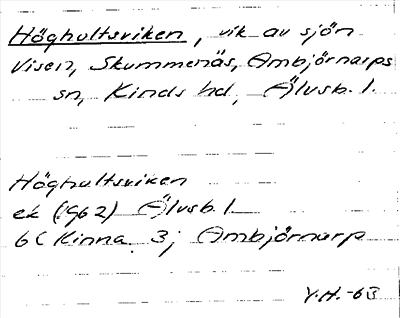 Höghultsviken, vik av sjön
Visen, Skummenäs, Ambjörnarps
sn, Kinds hd, Älvsb. l.
Höghultsviken
ek (1962) Älvsb. l
6C Kinna 3j Ambjörnarp
Y.H.-63